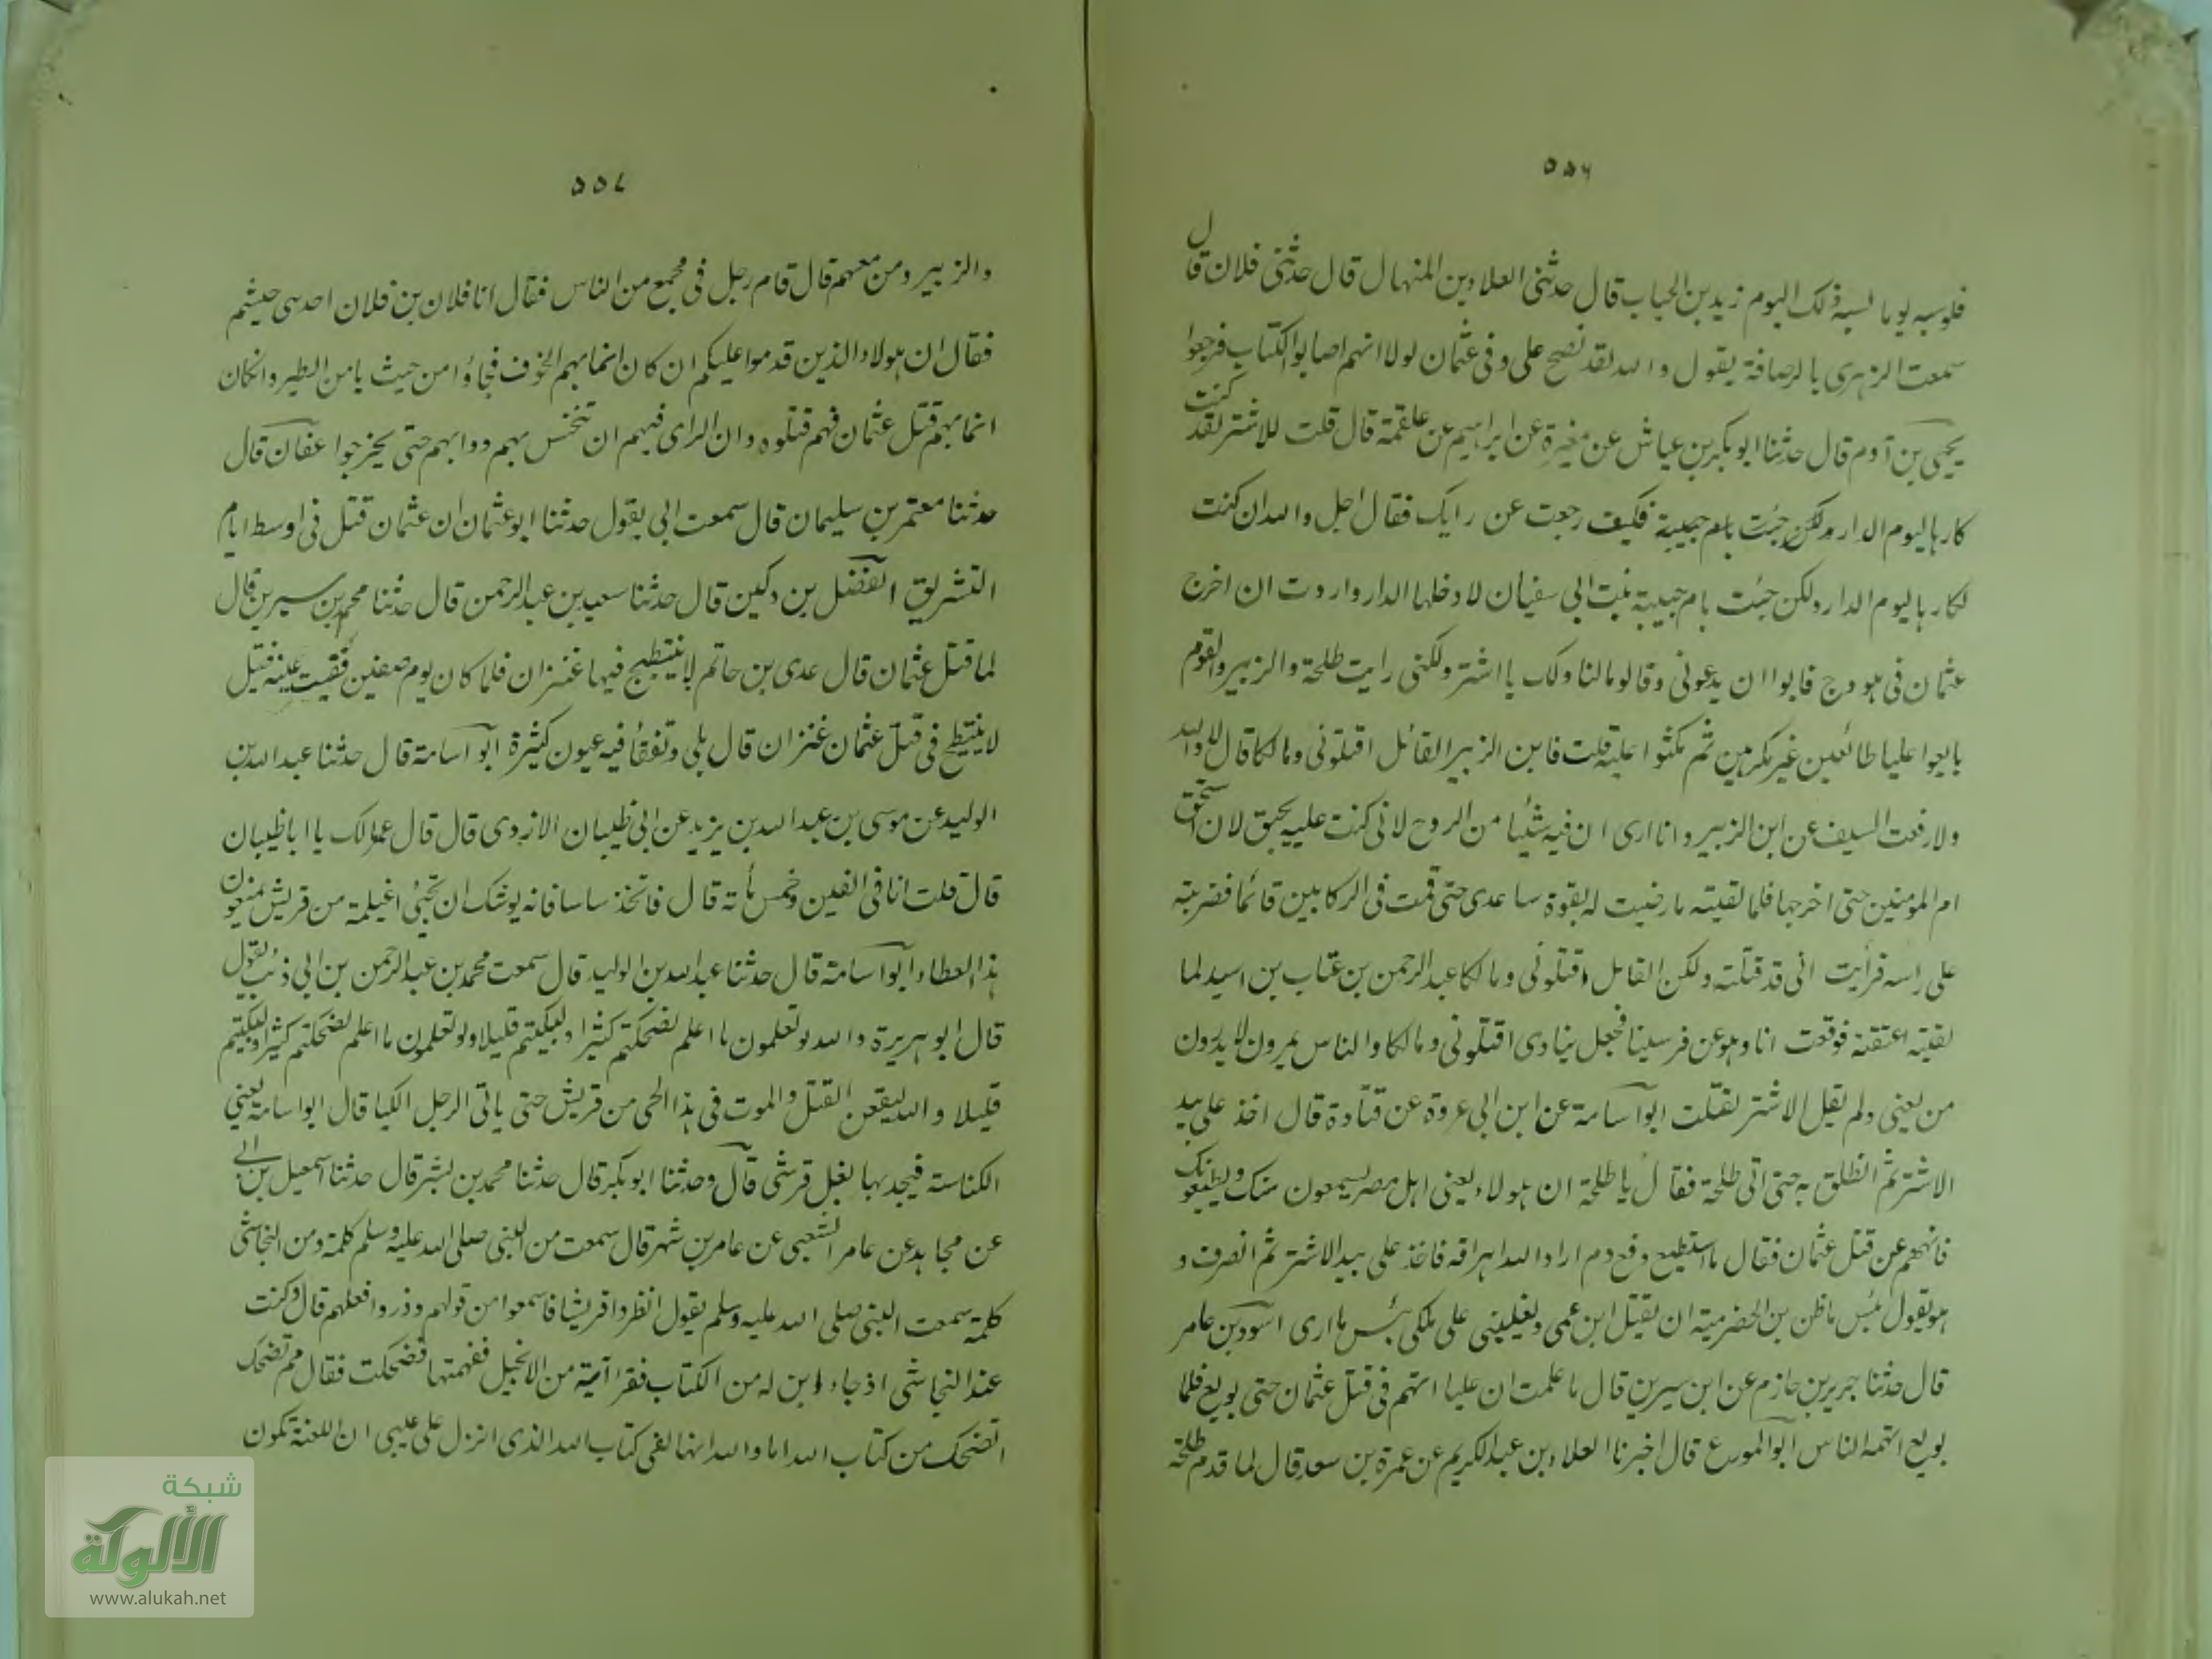 ٥٥٦
فلوسيه يوما لسبه ذلك اليوم زيد بن الحباب قال حدثنى العلاء بن المنهال قال حدثنى فلان قال
سمعت الزهرى بالرصافة يقول والله لقد نصح على وفى عثمان لولا انهم اصابوا الكتاب فرجعوا
يحيى بن آدم قال حدثنا ابو بكر بن عياش عن مغيرة عن ابراهيم عن علقمة قال قلت للاشتر لقد كنت
كارها ليوم الدار ولكن جئت بام حبيبة فكيف رجعت عن رايك فقال اجل والله ان كنت
لكارها ليوم الدار ولكن جئت بام حبيبة بنت ابى سفيان لادخلها الدار واردت ان اخرج
عثمان فى هودج فابوا ان يدعونى وقالوا مالنا ولك يا اشتر ولكنى رايت طلحة والزبير والقوم
بايعوا عليا طائعين غير مكرهين ثم نكثوا عليه قلت فابن الزبير القائل اقتلونى ومالكا قال لا والله
ولا رفعت السيف عن ابن الزبير وانا ارى ان فيه شيئا من الروح لانى كنت عليه بحق لان استخق
ام المومنين حتى اخرجها فلما لقيته ما رضيت له بقوة ساعدى حتى قمت فى الركابين قائما فضربته
على راسه فرأيت انى قد قتلته ولكن القائل اقتلونى ومالكا عبد الرحمن بن عتاب بن اسيد لما
لقيته اعتقنته فوقعت انا وهو عن فرسينا فجعل ينادى اقتلونى ومالكا والناس يمرون لا يدرون
من يعنى ولم يقل الاشتر لقتلت ابو اسامة عن ابن ابى عروة عن قتادة قال اخذ على بيد
الاشتر ثم انطلق به حتى اتى طلحة فقال يا طلحة ان هولاء يعنى اهل مصر يسمعون منك ويطيعونك
فانههم عن قتل عثمان فقال ما استطيع دفع دم اراد الله اهراقه فاخذ على بيد الاشتر ثم انصرف و
هو يقول بئس ما ظن بن الحضرمية ان يقتل ابن عمى ويغلبنى على ملكى بئس ما ارى اسود بن عامر
قال حدثنا جرير بن حازم عن ابن سيرين قال ما علمت ان عليا اتهم فى قتل عثمان حتى بويع فلما
بويع اتهمه الناس ابو المورع قال اخبرنا العلاء بن عبد الكريم عن عمرة بن سعد قال لما قدم طلحة
٥٥٧
والزبير ومن معهم قال قام رجل فى مجمع من الناس فقال انا فلان بن فلان احد بنى جشم
فقال ان هولاء الذين قدموا عليكم ان كان انما بهم الخوف فجاؤا من حيث يامن الطير وانكان
انما بهم قتل عثمان فهم قتلوه وان الراى فيهم ان تنخس بهم دوابهم حتى يخرجوا عفان قال
حدثنا معتمر بن سليمان قال سمعت ابى يقول حدثنا ابو عثمان ان عثمان قتل فى اوسط ايام
التشريق الفضل بن دكين قال حدثنا سعيد بن عبد الرحمن قال حدثنا محمد بن سيرين قال
لما قتل عثمان قال عدى بن حاتم لا ينتطح فيها عنزان فلما كان يوم صفين فقيت عينه فقيل
لا ينتطح فى قتل عثمان عنزان قال بلى وتفقأ فيه عيون كثيرة ابو اسامة قال حدثنا عبد الله بن
الوليد عن موسى بن عبد الله بن يزيد عن ابى ظبيان الازدى قال قال عمر مالك يا ابا ظبيان
قال قلت انا فى الفين وخمس مأته قال فاتخذ ساسا فانه يوشك ان تجئى اغيلمة من قريش يمنعون
هذا العطاء ابو اسامة قال حدثنا عبد الله بن الوليد قال سمعت محمد بن عبد الرحمن بن ابى ذئب يقول
قال ابو هريرة والله لو تعلمون ما اعلم لضحكتم كثيرا ولبكيتم قليلا ولو تعلمون ما اعلم لضحكتم كثيرا ولبكيتم
قليلا والله ليقعن القتل والموت فى هذا الحى من قريش حتى ياتى الرجل الكبا قال ابو اسامة يعنى
الكناسة فيجد بها نعل قرشى قال وحدثنا ابو بكر قال حدثنا محمد بن بشر قال حدثنا اسمعيل بن ابى
عن مجاهد عن عامر الشعبى عن عامر بن شهر قال سمعت من النبى صلى الله عليه وسلم كلمة ومن النجاشى
كلمة سمعت النبى صلى الله عليه وسلم يقول انظروا قريشا فاسمعوا من قولهم وذروا فعلهم قال وكنت
عند النجاشى اذ جاء ابن له من الكتاب فقرا آية من الانجيل ففهمتها فضحكت فقال مم تضحك
اتضحك من كتاب الله اما والله انها لفى كتاب الله الذى انزل على عيسى ان اللعنة تكون
شبكة
الألوكة
www.alukah.net